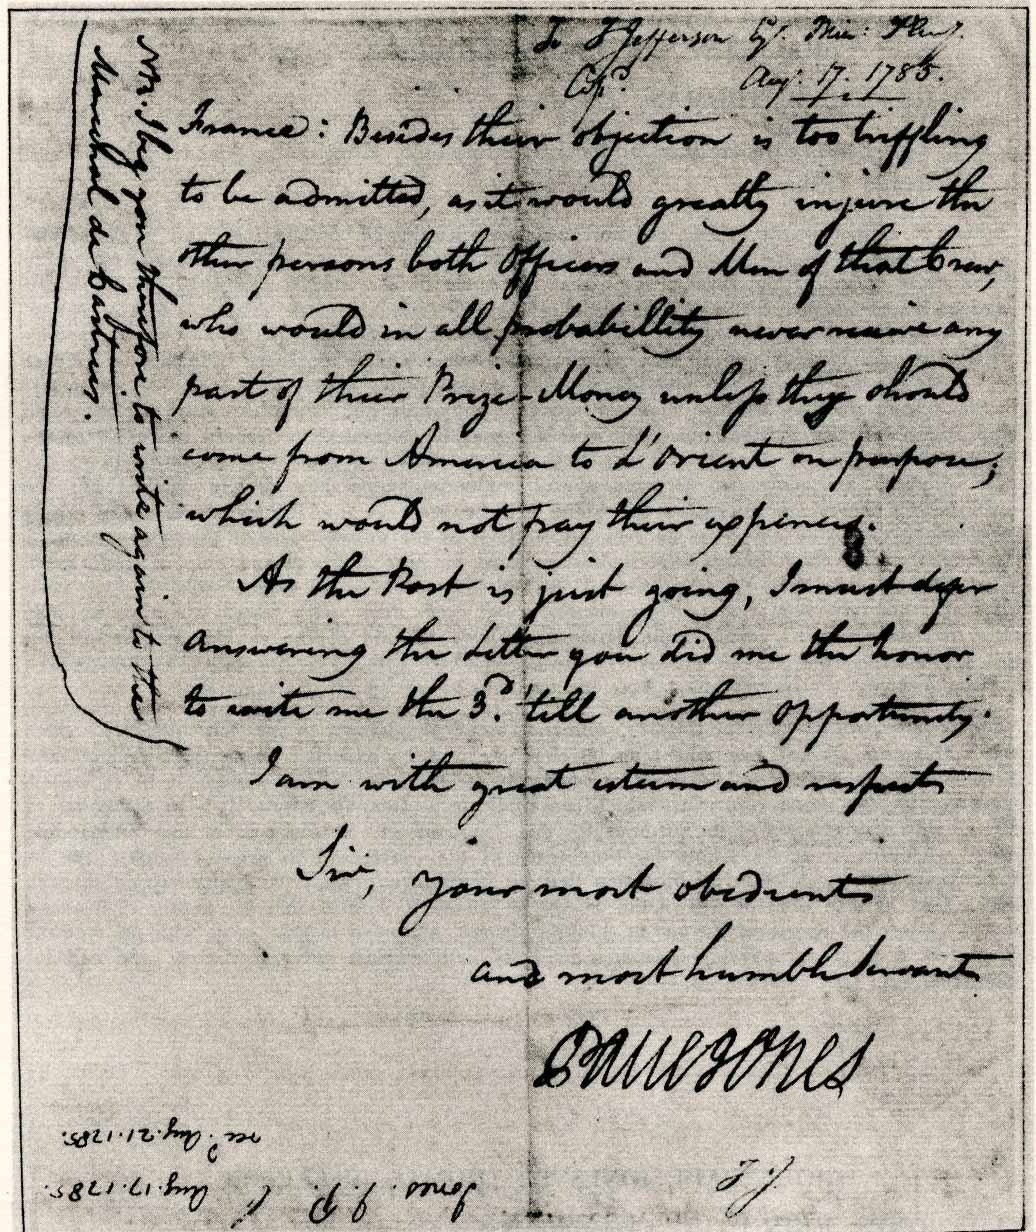 To T Jefferson Esqr. Min: Plen:
Aug. 17. 1785.
France: Besides their objection is too triffling
to be admitted, as it would greatly injure the
other persons both Officers and Men of that Crew,
who would in all probabillity never receive any
part of their Prize-Money unless they should
come from America to L'Orient on purpose,
which would not pay their expences.
As the Post is just going, I must defer
answering the Letter you did me the honor
to write me the 3d. 'till another opportunity.
I am with great esteem and respect
Sir, your most obedient
and most humble Servant
Paul Jones
NB. I beg you therefore to write again to the
Marechal de Castries.
T. J.
Jones J. P.
Aug. 17. 1785.
recd. Aug. 21. 1785.